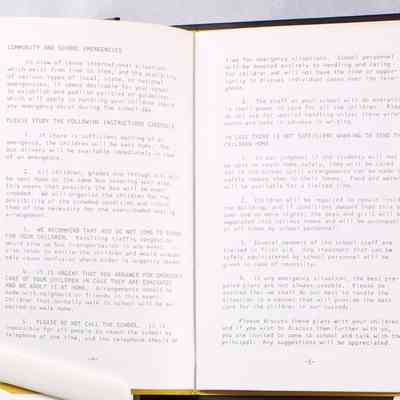 COMMUNITY AND SCHOOL EMERGENCIES
In view of tense international situations
which exist from time to time, and the possibility
of various types of local, state, or national
emergencies, it seems desirable for your school
to establish and publish policies or guidelines
which will apply to handling your children should
any emergency exist during the school day.
PLEASE STUDY THE FOLLOWING INSTRUCTIONS CAREFULLY
1. If there is sufficient warning of an
emergency, the children will be sent home. The
bus drivers will be available immediately in case
of an emergency.
2. All children, grades one through six will
be sent home on the same bus covering your area.
This means that possibly the bus will be very
crowded. We will organize the children for the
possibility of the crowded condition and inform
them of the necessity for the overcrowded seating
arrangement.
3. WE RECOMMEND THAT YOU DO NOT COME TO SCHOOL
FOR YOUR CHILDREN. Resulting traffic congestion
would slow up bus transportation in any event.
also tends to excite the children and would probably
help cause confusion where order is urgently needed.
4. IT IS URGENT THAT YOU ARRANGE FOR EMERGENCY
CARE OF YOUR CHILDREN IN CASE THEY ARE EVACUATED
AND NO ADULT IS AT HOME. Arrangements should be
made with neighbors or friends in this event.
Children that normally walk to school will be
to walk home.
5. PLEASE DO NOT CALL THE SCHOOL. It is
impossible for all people to reach the school by
telephone at one time, and the telephone should be
time for emergency situations. School personnel
will be devoted entirely to handling and caring
for children and will not have the time or oppor-
tunity to discuss individual cases over the tele-
phone.
6. The staff at your school will be operating
in employment to care for all the children. Please
do not ask for special handling unless these
and aid in advance in writing.
IN CASE THERE IS NOT SUFFICIENT WARNING TO SEND THE
CHILDREN HOME
1. In our judgment if the students will not
be able to reach home safely, they will be cared
for in the school until arrangements can be made to
safely return them to their homes. Food and water
will be available for a limited time.
2. Children will be required to remain inside
the building, and if conditions demand that this be
over one or more nights, the boys and girls will be
separated into various rooms and will be accompanied
at all times by school personnel.
3. Several members of the school staff are
trained in first aid. Any treatment that can be
safely administered by school personnel will be
given in case of casualty.
4. In any emergency situation, the best pre-
pared plans are not always useable. Please be
assured that we shall do our best to handle the
situation in a manner that will provide the best
care for the children in our custody.
Please discuss these plans with your children
and if you wish to discuss them further with us,
you are invited to come to school and talk with the
principal. Any suggestions will be appreciated.